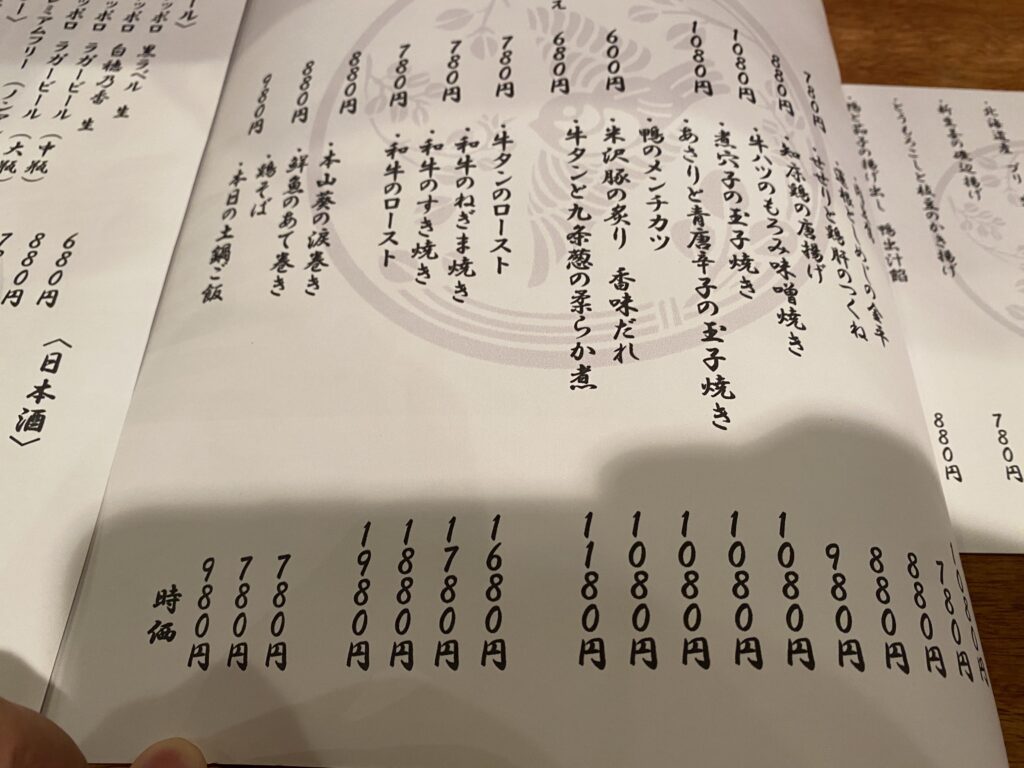 ・北海道産 ブリ
780円
・新生姜の磯辺揚げ
880円
・とうもろこしと枝豆のかき揚げ
・鴨と茄子の揚げ出し 鴨出汁餡
しめじの金平
780円
・せせりと鶏肝のつくね
880円
・知床鶏の唐揚げ
880円
・牛ハツのもろみ味噌焼き
980円
・煮穴子の玉子焼き
1080円
・あさりと青唐辛子の玉子焼き
1080円
・鴨のメンチカツ
1080円
・米沢豚の炙り 香味だれ
1080円
・牛タンと九条葱の柔らか煮
1180円
・牛タンのロースト
1680円
・和牛のねぎま焼き
1780円
・和牛のすき焼き
1880円
・和牛のロースト
1980円
・本山葵の涙巻き
780円
・鮮魚のあて巻き
780円
・鶏そば
980円
・本日の土鍋ご飯
時価
780円
880円
1080円
1080円
600円
え
680円
780円
780円
780円
880円
880円
980円
ール〉
ッポロ 黒ラベル 生
ッポロ 白穂乃香 生
ッポロ ラガービール (中瓶)
680円
ッポロ ラガービール (大瓶)
880円
レミアムフリー (ノン
〈日本酒〉